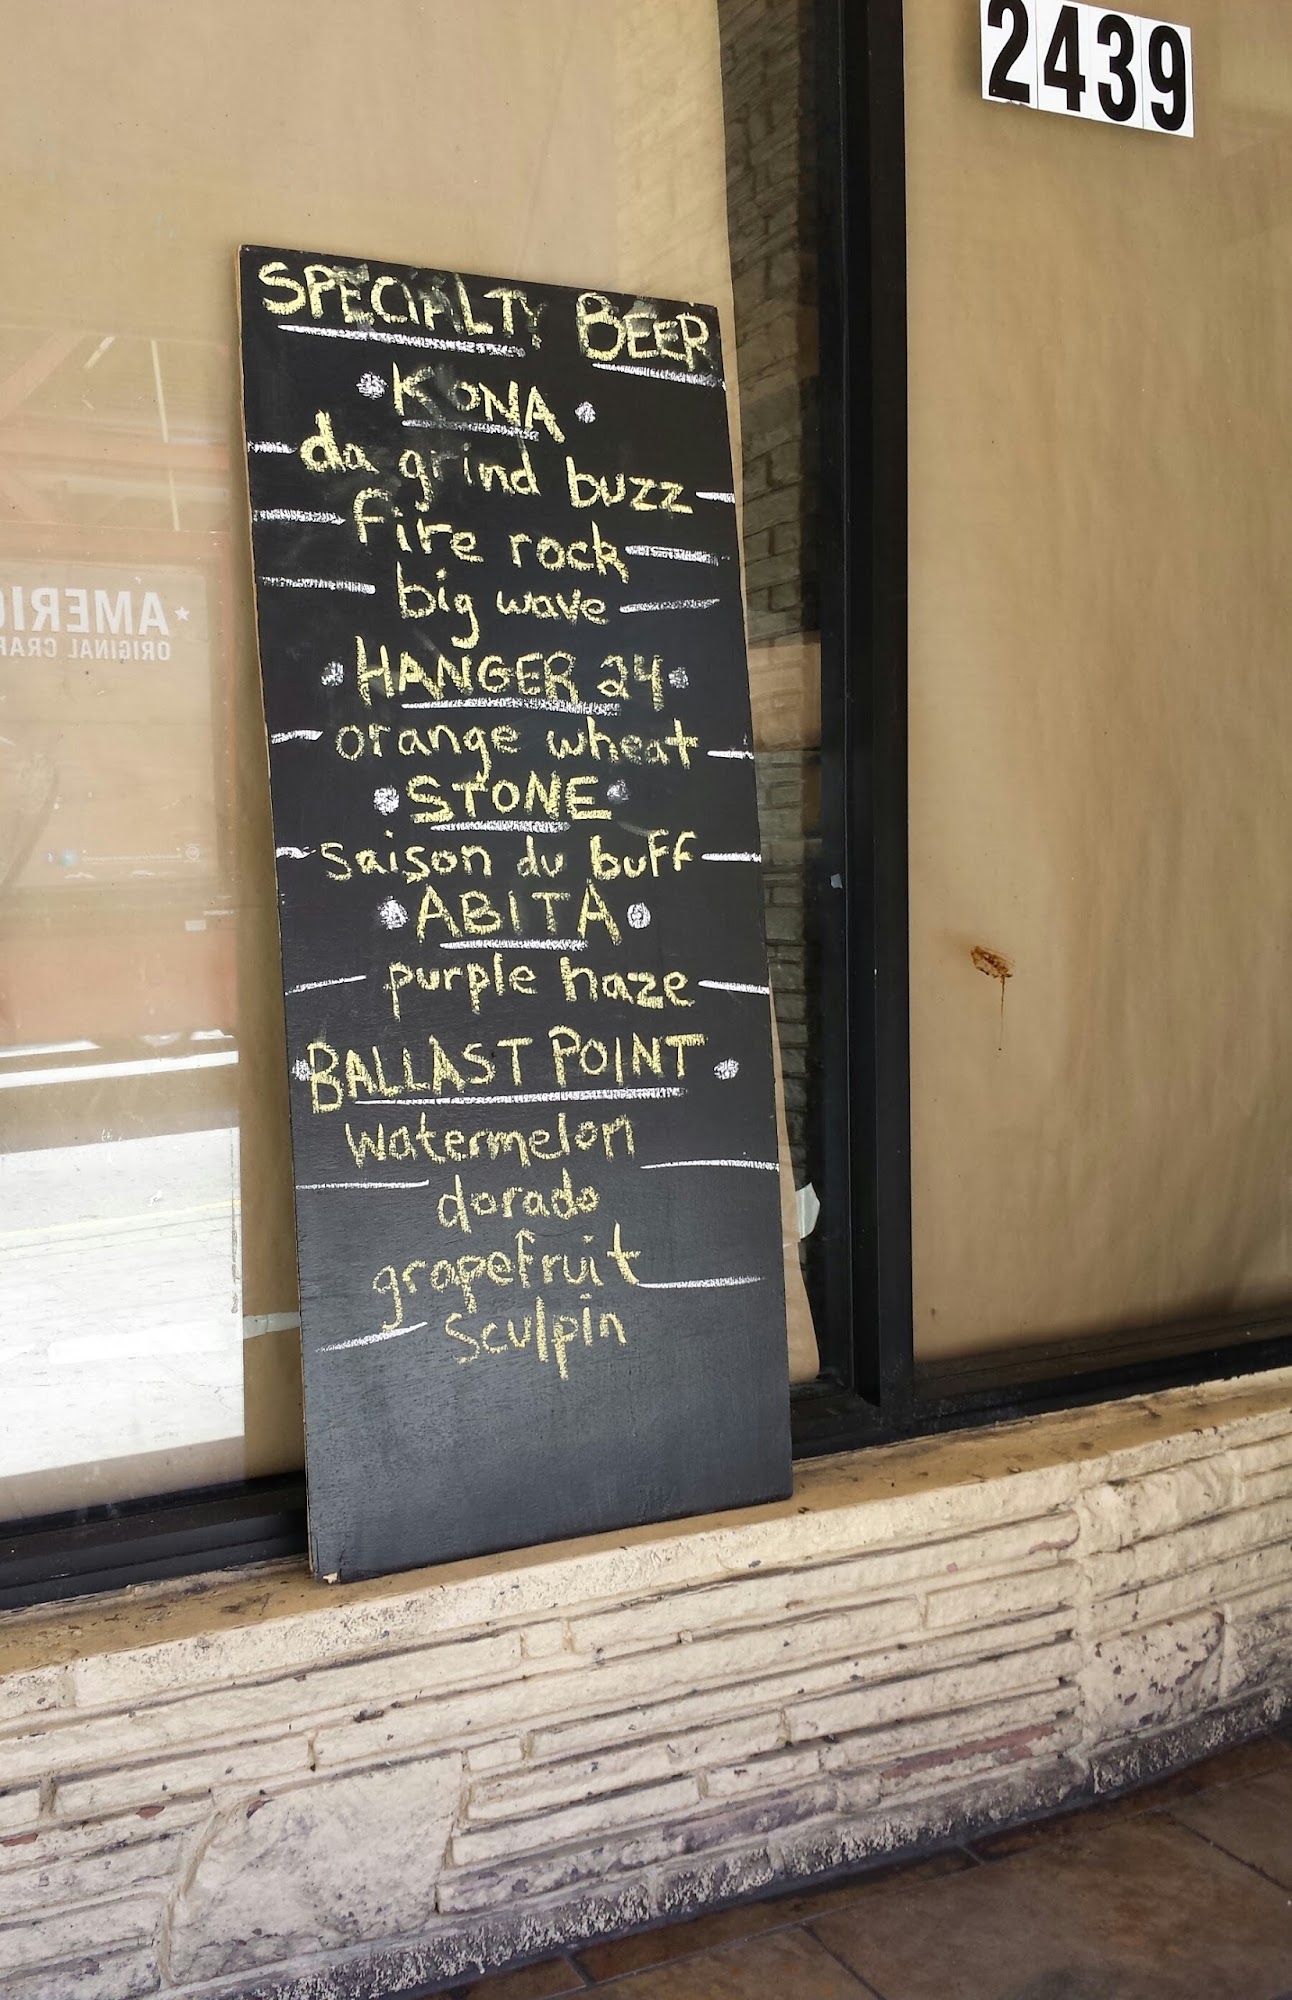 2439
SPECIALTY BEER
KONA
da grind buzz
fire rock
big wave
HANGER 24
orange wheat
STONE
saison du buff
ABITA
purple haze
BALLAST POINT
watermelon
dorado
grapefruit
sculpin
AMERIC
ORIGINAL CRAF